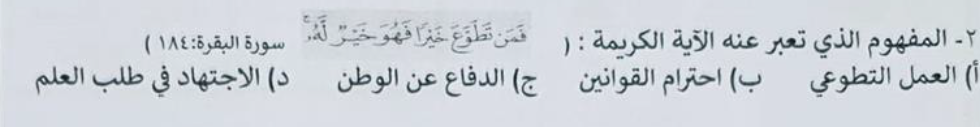 ٢- المفهوم الذي تعبر عنه الآية الكريمة : ( فَمَن تَطَوَّعَ خَيْرًا فَهُوَ خَيْرٌ لَّهُۥ سورة البقرة:١٨٤ )
أ) العمل التطوعي ب) احترام القوانين ج) الدفاع عن الوطن د) الاجتهاد في طلب العلم